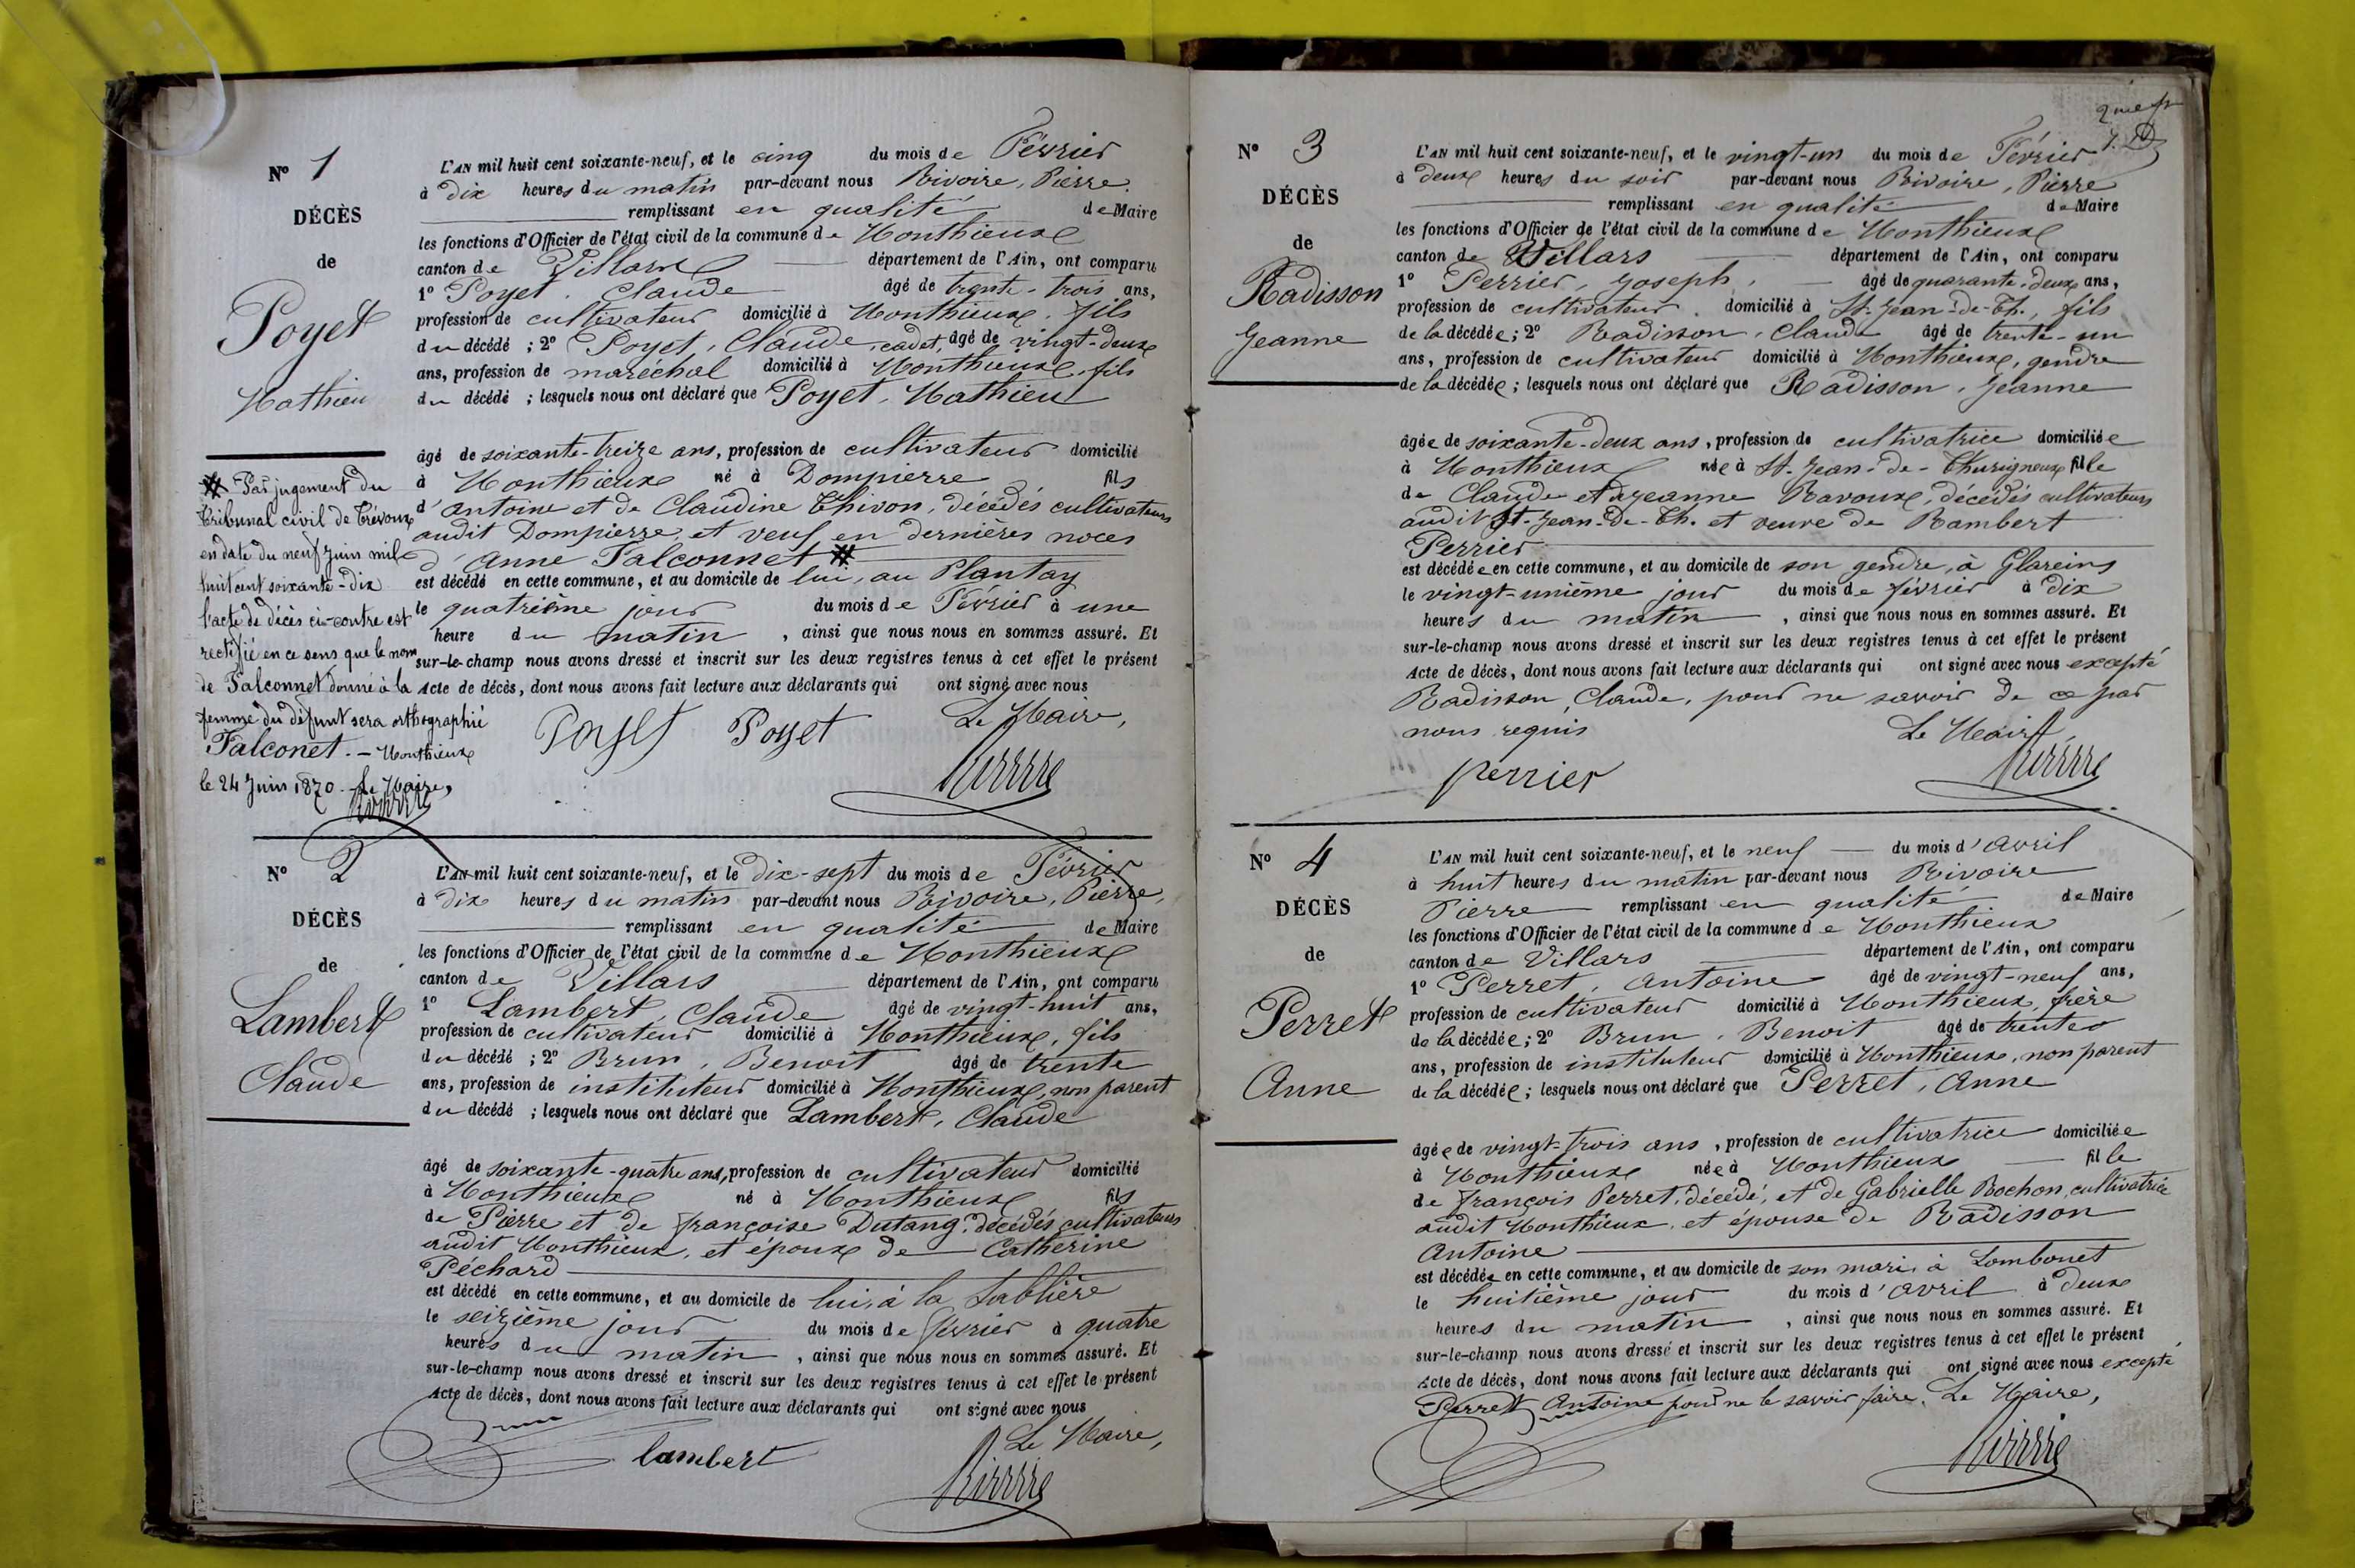 N° 1
DÉCÈS
de
Poyet
Mathieu
L'AN mil huit cent soixante-neuf, et le cinq du mois de Février
à dix heures du matin par-devant nous Rivoire, Pierre.
remplissant en qualité de Maire
les fonctions d'Officier de l'état civil de la commune de Monthieux
canton de Villars département de l'Ain, ont comparu
1° Poyet. Claude âgé de trente-trois ans,
profession de cultivateur domicilié à Monthieux, fils
du décédé ; 2° Poyet, Claude, cadet, âgé de vingt-deux
ans, profession de maréchal domicilié à Monthieux, fils
du décédé ; lesquels nous ont déclaré que Poyet, Mathieu
âgé de soixante-treize ans, profession de cultivateur domicilié
à Monthieux né à Dompierre fils
d'Antoine et de Claudine Thivon, décédés cultivateurs
audit Dompierre, et veuf en dernières noces
d'Anne Falconnet #
est décédé en cette commune, et au domicile de lui, au Plantay
le quatrième jour du mois de Février à une
heure du matin, ainsi que nous nous en sommes assuré. Et
sur-le-champ nous avons dressé et inscrit sur les deux registres tenus à cet effet le présent
Acte de décès, dont nous avons fait lecture aux déclarants qui ont signé avec nous
Le Maire,
Poyet Poyet
Rivoire
# Par jugement du
Tribunal civil de Trévoux
en date du neuf juin mil
huit cent soixante-dix
l'acte de décès ci-contre est
rectifié en ce sens que le nom
de Falconnet donné à la
femme du défunt sera orthographié
Falconet. - Monthieux
le 24 Juin 1870. Le Maire,
Rivoire
N° 2
DÉCÈS
de
Lambert
Claude
L'AN mil huit cent soixante-neuf, et le dix-sept du mois de Février
à dix heures du matin par-devant nous Rivoire, Pierre,
remplissant en qualité de Maire
les fonctions d'Officier de l'état civil de la commune de Monthieux
canton de Villars département de l'Ain, ont comparu
1° Lambert, Claude âgé de vingt-huit ans,
profession de cultivateur domicilié à Monthieux, fils
du décédé ; 2° Brun, Benoit âgé de trente
ans, profession de instituteur domicilié à Monthieux, non parent
du décédé ; lesquels nous ont déclaré que Lambert, Claude
âgé de soixante-quatre ans, profession de cultivateur domicilié
à Monthieux né à Monthieux fils
de Pierre et de Françoise Dutang, décédés cultivateurs
audit Monthieux, et époux de Catherine
Péchard
est décédé en cette commune, et au domicile de lui, à la Sablière
le seizième jour du mois de février à quatre
heures du matin, ainsi que nous nous en sommes assuré. Et
sur-le-champ nous avons dressé et inscrit sur les deux registres tenus à cet effet le présent
Acte de décès, dont nous avons fait lecture aux déclarants qui ont signé avec nous
Le Maire,
Brun lambert
Rivoire
N° 3
DÉCÈS
de
Radisson
Jeanne
L'AN mil huit cent soixante-neuf, et le vingt-un du mois de Février
à deux heures du soir par-devant nous Rivoire, Pierre
remplissant en qualité de Maire
les fonctions d'Officier de l'état civil de la commune de Monthieux
canton de Villars département de l'Ain, ont comparu
1° Perrier, Joseph, âgé de quarante-deux ans,
profession de cultivateur domicilié à St-Jean-de-Th., fils
de la décédée ; 2° Radisson, Claude âgé de trente-un
ans, profession de cultivateur domicilié à Monthieux, gendre
de la décédée ; lesquels nous ont déclaré que Radisson, Jeanne
âgée de soixante-deux ans, profession de cultivatrice domiciliée
à Monthieux née à St-Jean-de-Thurigneux fille
de Claude et de Jeanne Ravoux, décédés cultivateurs
audit St-Jean-de-Th. et veuve de Rambert
Perrier
est décédée en cette commune, et au domicile de son gendre, à Glareins
le vingt-unième jour du mois de février à dix
heures du matin, ainsi que nous nous en sommes assuré. Et
sur-le-champ nous avons dressé et inscrit sur les deux registres tenus à cet effet le présent
Acte de décès, dont nous avons fait lecture aux déclarants qui ont signé avec nous excepté
Radisson, Claude, pour ne savoir de ce par
nous requis Le Maire,
perrier
Rivoire
N° 4
DÉCÈS
de
Perret
Anne
L'AN mil huit cent soixante-neuf, et le neuf du mois d'avril
à huit heures du matin par-devant nous Rivoire
Pierre remplissant en qualité de Maire
les fonctions d'Officier de l'état civil de la commune de Monthieux
canton de Villars département de l'Ain, ont comparu
1° Perret, Antoine âgé de vingt-neuf ans,
profession de cultivateur domicilié à Monthieux, frère
de la décédée ; 2° Brun, Benoit âgé de trente
ans, profession de instituteur domicilié à Monthieux, non parent
de la décédée ; lesquels nous ont déclaré que Perret, Anne
âgée de vingt-trois ans, profession de cultivatrice domiciliée
à Monthieux née à Monthieux fille
de François Perret, décédé, et de Gabrielle Bochon, cultivatrice
audit Monthieux, et épouse de Radisson
Antoine
est décédée en cette commune, et au domicile de son mari, à Lombonet
le huitième jour du mois d'avril à deux
heures du matin, ainsi que nous nous en sommes assuré. Et
sur-le-champ nous avons dressé et inscrit sur les deux registres tenus à cet effet le présent
Acte de décès, dont nous avons fait lecture aux déclarants qui ont signé avec nous excepté
Perret Antoine pour ne le savoir faire. Le Maire,
Rivoire